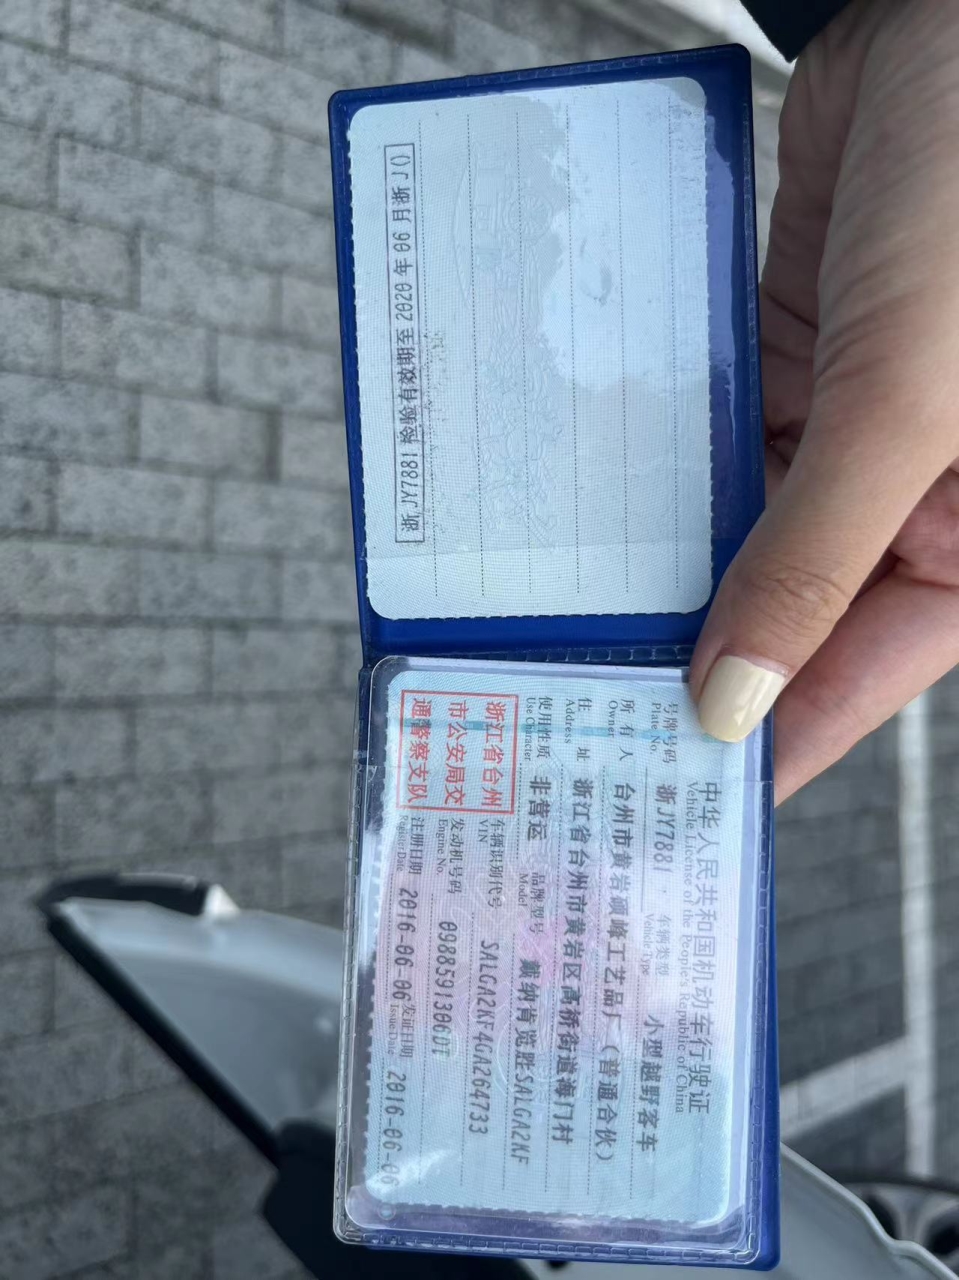 浙JY7881 检验有效期至 2020 年 06 月浙 J()
中华人民共和国机动车行驶证
Vehicle License of the People's Republic of China
号牌号码 浙JY7881 车辆类型 小型越野客车
Plate No. Vehicle Type
所有人 台州市黄岩颍峰工艺品厂（普通合伙）
Owner
住址 浙江省台州市黄岩区高桥街道海门村
Address
使用性质 非营运 品牌型号 戴纳肯览胜SALGA2KF
Use Character Model
浙江省台州
市公安局交
通警察支队
车辆识别代号 SALGA2KF4GA264733
VIN
发动机号码 0988591306DT
Engine No.
注册日期 2016-06-06 发证日期 2016-06-06
Register Date Issue Date